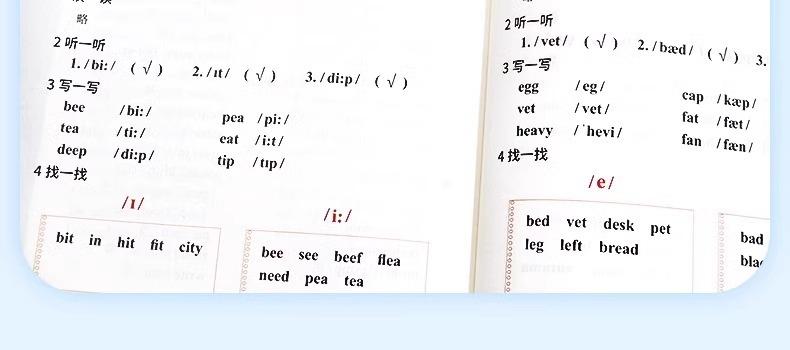 略
2 听一听
1. /bi:/ ( √ ) 2. /ɪt/ ( √ ) 3. /di:p/ ( √ )
3 写一写
bee /bi:/ pea /pi:/
tea /ti:/ eat /i:t/
deep /di:p/ tip /tɪp/
4 找一找
/ɪ/ /i:/
bit in hit fit city
bee see beef flea
need pea tea
2 听一听
1. /vet/ ( √ ) 2. /bæd/ ( √ ) 3.
3 写一写
egg /eg/ cap /kæp/
vet /vet/ fat /fæt/
heavy /ˈhevi/ fan /fæn/
4 找一找
/e/
bed vet desk pet
leg left bread
bad